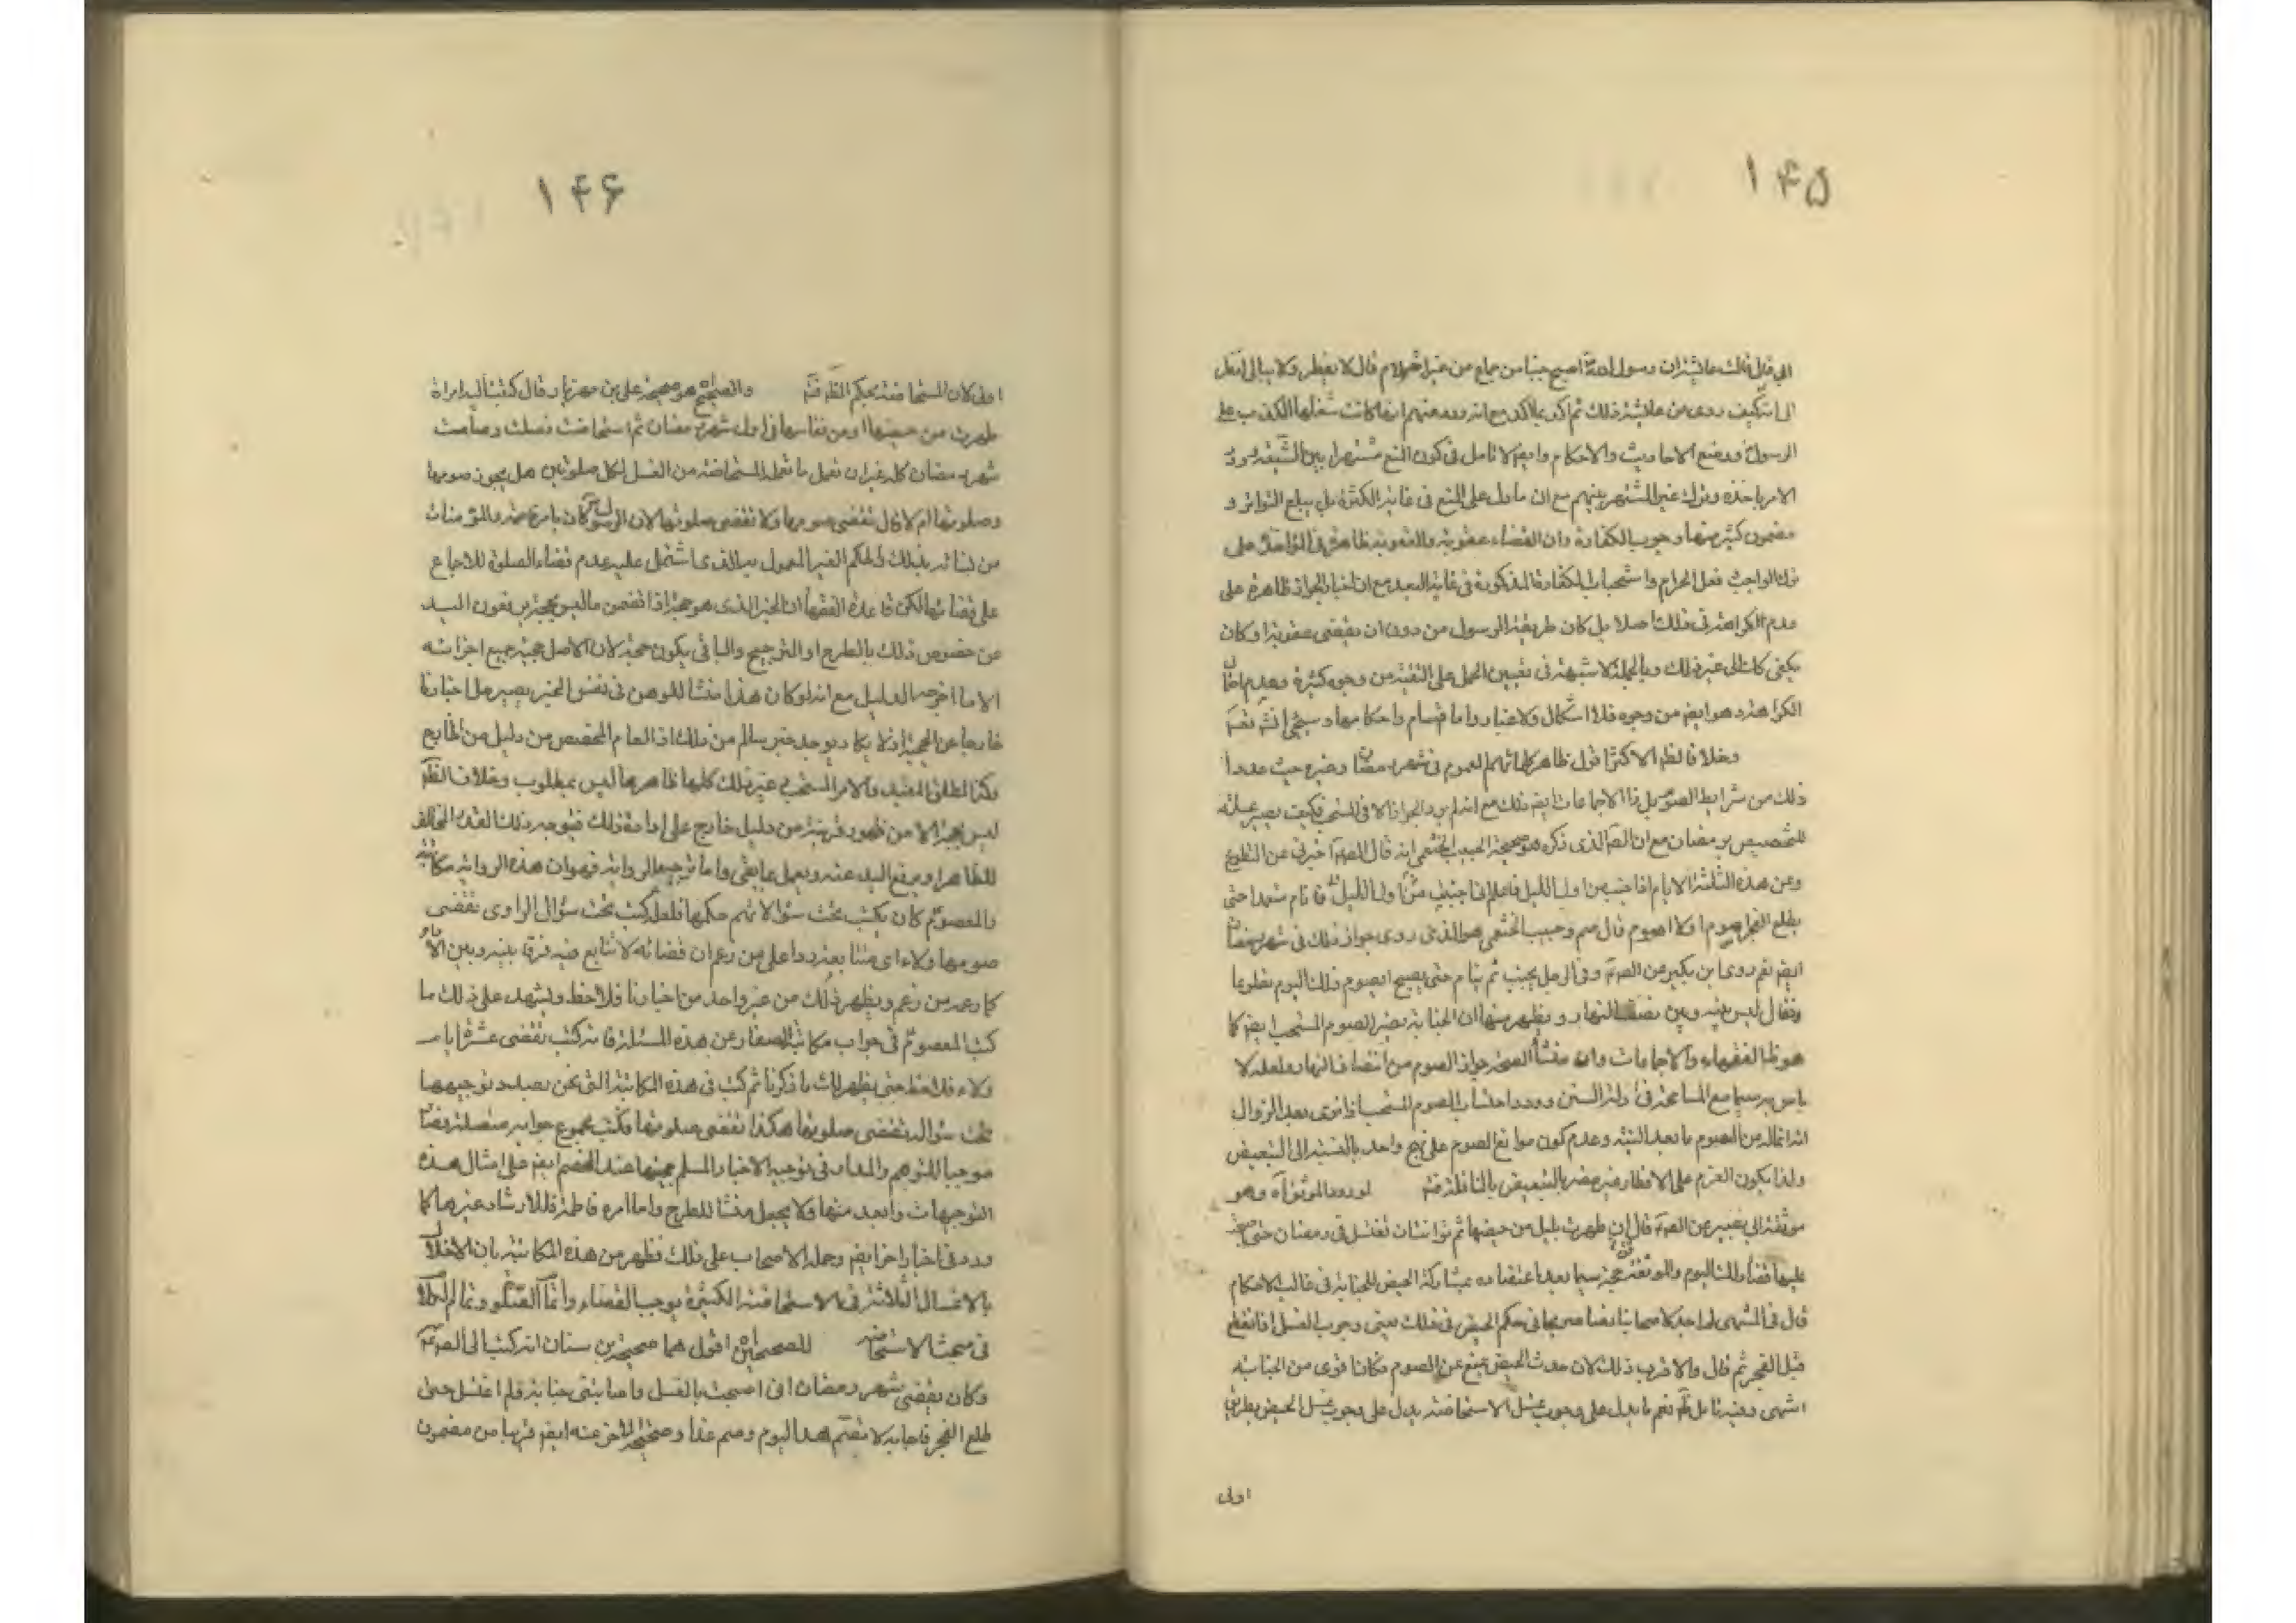 ۱۴۵
الى قال قالت عائشة ان رسول الله اصبح جنبا من جماع من غير احتلام قال لا يفطر ولا يبالى
الى انه كيف روى من عائشة ذلك ثم اكد بما اكد مع انه ورد عنهم انها كانت شغلها الكذب على
الرسول ووضع الاحاديث والاحكام وايضا لا تامل فى كون المنع مشتهرا بين الشيعة
الامر باخذه وترك غير المشتهر بينهم مع ان ما دل على المنع فى غاية الكثرة بل يبلغ التواتر و
مضمون كثير منها وجوب الكفارة وان القضاء عقوبة والعقوبة ظاهرة فى المؤاخذة على
ترك الواجب فعل الحرام واستحباب الكفارة المذكورة فى غاية البعد مع ان اخبار الجواز ظاهرة على
عدم الكراهة فى ذلك اصلا بل كان طريقة الرسول من دون ان يقضى عقوبة او كان
الى غير ذلك وبالجملة لا شبهة فى تعيين الحمل على التقية من وجوه كثيرة وعدم
الكراهة هو ايضا من وجوه فلا اشكال ولا غبار واما اقسام واحكامها وسيجئ
وخلافا لظم الاكثر اقول ظاهر كلماتهم العموم فى شهر رمضان وغيره حيث عدوا
ذلك من شرايط الصوم بل الاجماعات ايضا كذلك مع انه لم يرد الجواز الا فى المستحب فكيف يصير
للتخصيص برمضان مع ان الذى ذكره هو صحيحة الحبيب الخثعمى انه قال اخبرنى عن التطوع
وعن هذه الثلثة الايام اذا اجنبت من اول الليل فاعلم انى اجنبت اول الليل فانام متعمدا حتى
يطلع الفجر اصوم او لا اصوم قال صم وحبيب الخثعمى هو الذى روى جواز ذلك فى شهر رمضان
ايضا نعم روى ابن بكير عن فى الرجل يجنب ثم ينام حتى يصبح ايصوم ذلك اليوم تطوعا
فقال اليس بينه وبين نصف النهار ويظهر منها ان الجنابة تضر الصوم المستحب ايضا كما
هو ظ الفقهاء والاجماعات وان منشأ الصحة جواز الصوم من انتصاف النهار ولعله لا
باس به سيما مع المسامحة فى ادلة السنن وورد احتساب الصوم المستحب اذا نوى بعد الزوال
من الصوم ما بعد النية وعدم كون موانع الصوم على نهج واحد بالنسبة الى التبعيض
ولذا يكون العزم على الافطار غير مضر بالتبعيض بالنافلة لورود الموثق آه وهو
موثقة ابى بصير عن قال ان طهرت بليل من حيضها ثم توانت ان تغتسل فى رمضان حتى اصبحت
عليها قضاء ذلك اليوم والموثقة حجة سيما بعد اعتضاده بمشاركة الحيض للجنابة فى غالب الاحكام
قال فى المنتهى لم اجد لاصحابنا نصا صريحا فى حكم الحيض فى ذلك يعنى وجوب الغسل اذا انقطع
قبل الفجر ثم قال والاقرب ذلك لان حدث الحيض يمنع عن الصوم فكان اقوى من الجنابة
انتهى وفيه تامل نعم ما يدل على وجوب غسل الاستحاضة يدل على وجوب غسل الحيض بطريق
اولى
۱۴۶
اولى لان المستحاضة بحكم والصحيح هو صحيحة على بن مهزيار قال كتبت اليه امراة
طهرت من حيضها او من نفاسها فى اول شهر رمضان ثم استحاضت فصلت وصامت
شهر رمضان كله غير ان تعمل ما تعمله المستحاضة من الغسل لكل صلوتين هل يجوز صومها
وصلوتها ام لا قال تقضى صومها ولا تقضى صلوتها لان الرسول كان يامر والمؤمنات
من نسائه بذلك والحكم الغير المعمول به الذى اشتمل عليه عدم قضاء الصلوة للاجماع
على قضائها لكن قاعدة الفقهاء ان الخبر الذى هو حجة اذا تضمن ما ليس بحجة يرفعون اليد
عن خصوص ذلك بالطرح او الترجيح والباقى يكون حجة لان الاصل حجية جميع اجزائه
الا ما اخرجه الدليل مع انه لو كان هذا منشأ للوهن فى نفس الخبر يصير جل اخبارنا
خارجا عن الحجية اذ لا يكاد يوجد خبر سالم من ذلك اذ العام المخصص من دليل من الخارج
وكذا المطلق المقيد والامر المستحب غير ذلك كلها ظاهرها ليس بمطلوب وخلاف
ليس بحجة الا من ظهور قرينة من دليل خارج على ارادة ذلك فيتوجه ذلك القدر المخالف
للظاهر او يرفع اليد عنه ويعمل بما بقى واما توجيه الرواية فهو ان هذه الرواية مكاتبة
والمعصوم كان يكتب تحت سؤالاتهم حكمها فلعله كتب تحت سؤال الراوى تقضى
صومها ولاء اى متتابعة ردا على من زعم ان قضائه لا تتابع فيه فرقا بينه وبين
كما زعمه من زعم ويظهر ذلك من غير واحد من اخبارنا فلاحظ ويشهد على ذلك ما
كتب المعصوم فى جواب مكاتبة الصفار عن هذه المسئلة فانه كتب تقضى عشرة ايام
ولاء فلاحظ حتى يظهر لك ما ذكرنا ثم كتب فى هذه المكاتبة التى نحن بصدد توجيهها
تحت سؤاله تقضى صلوتها هكذا تقضى صلوتها فكتب مجموع جوابه متصلة
موجبا للتوهم والمدار فى توجيه الاخبار المسلم حجيتها عند الخصم ايضا على امثال هذه
التوجيهات وابعد منها ولا يجعل منشأ للطرح واما امره فاطمة فللارشاد غيرها كما
ورد فى اخبار اخر ايضا وحمله الاصحاب على ذلك فظهر من هذه المكاتبة بان الاخلال
بالاغسال الثلاثة فى الاستحاضة الكثيرة يوجب القضاء
فى مبحث الاستحاضة للصحيحين اقول هما صحيحة ابن سنان انه كتب الى
وكان يقضى شهر رمضان انى اصبحت بالغسل واصابتنى جنابة فلم اغتسل حتى
طلع الفجر فاجابه لا تصم هذا اليوم وصم غدا وصحيحة الاخر عنه ايضا قريبا من مضمون